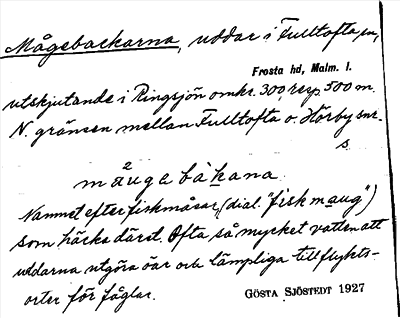 Mågebackarna, uddar i Fulltofta sn,
Frosta hd, Malm. l.
utskjutande i Ringsjön omkr. 300 resp. 500 m.
N. gränsen mellan Fulltofta o. Hörby snr.
s.
måugebakana
Namnet efter fiskmåsar, (dial. "fiskmaug")
som häcka därst. Ofta så mycket vatten att
uddarna utgöra öar och lämpliga tillflykts-
orter för fåglar.
GÖSTA SJÖSTEDT 1927